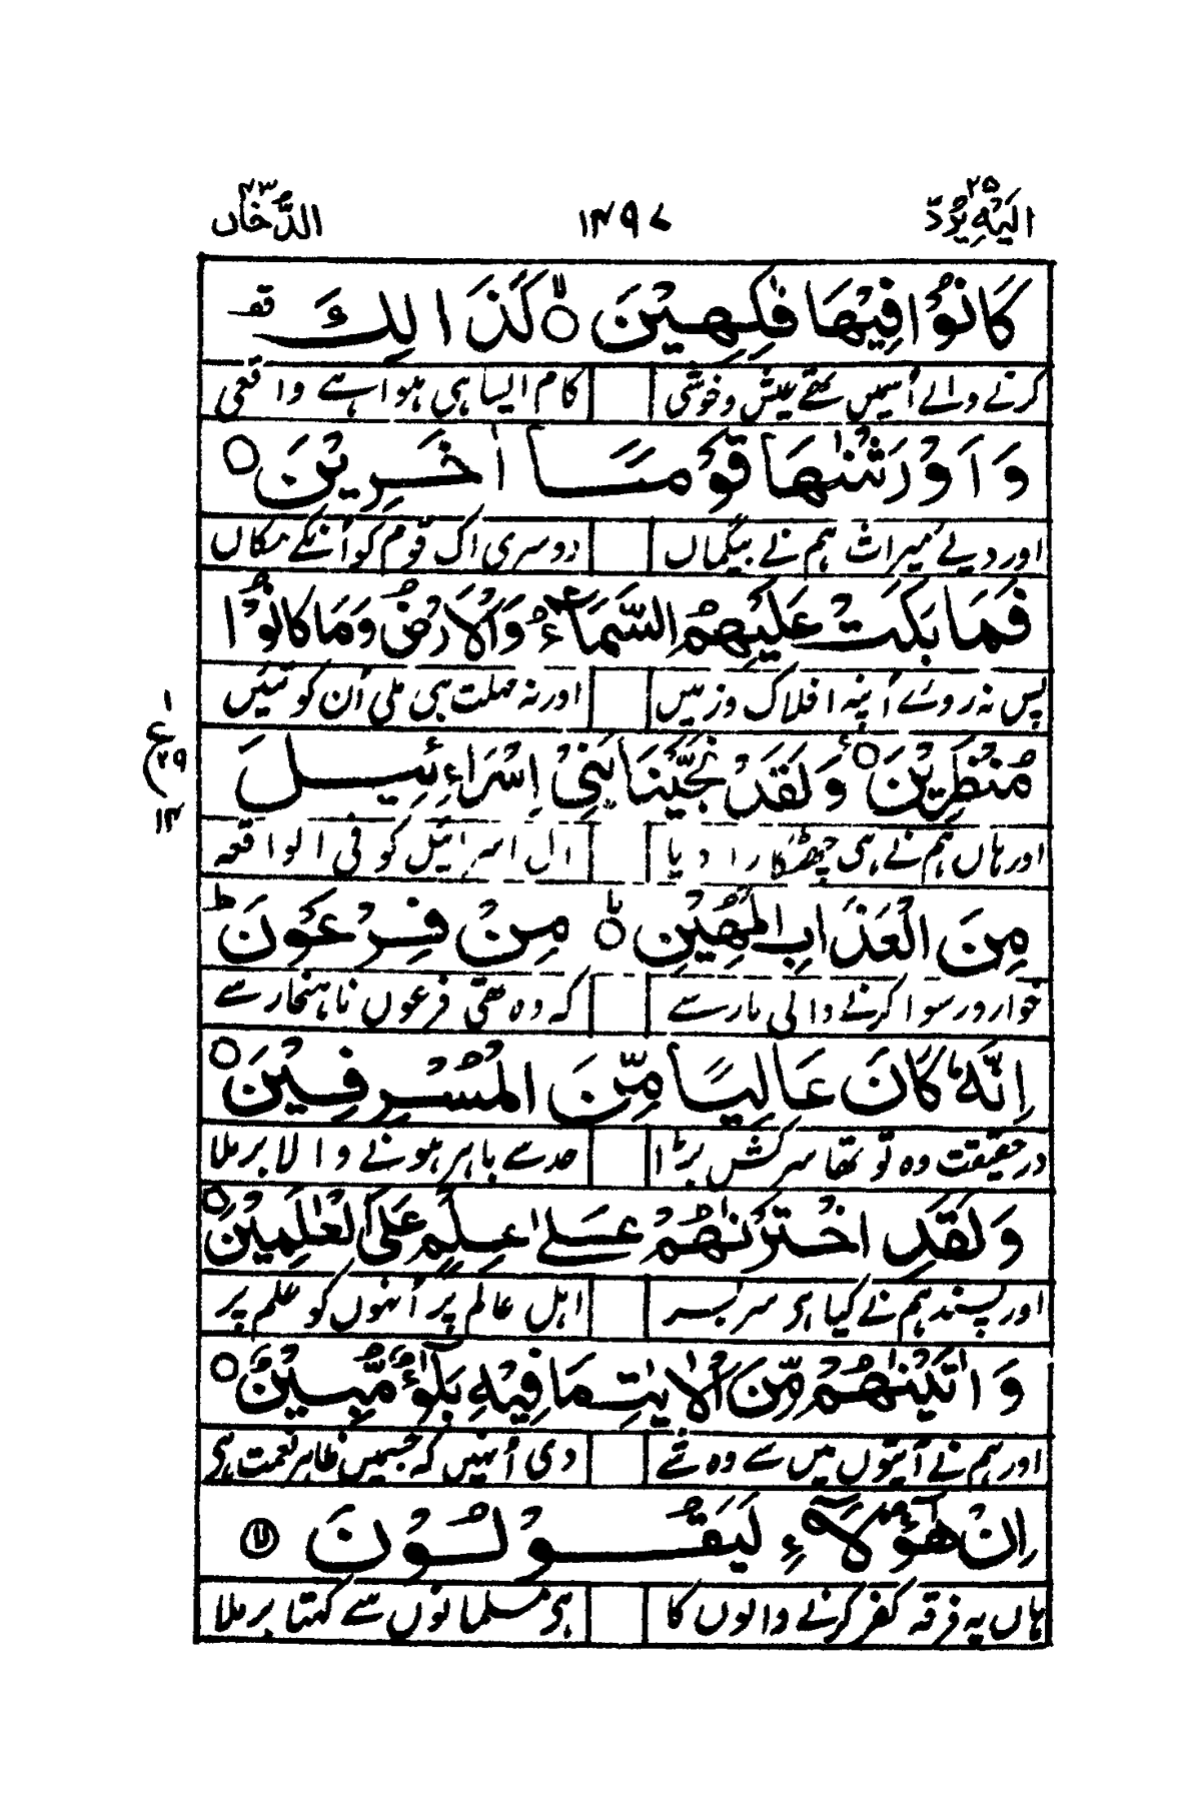 الیہ یرد ۲۵ ۱۴۹۷ الدخان ۴۳
كَانُوْا فِيْهَا فٰكِهِيْنَ ۙ كَذَالِكَ قف
کرنے والے اُسمیں تھے عیش و خوشی کام ایسا ہی ہوا ہے واقعی
وَ اَوْرَثْنٰهَا قَوْمًا اٰخَرِيْنَ ○
اور دیے میراث ہم نے بیگماں دوسری اک قوم کو اُنکے مکاں
فَمَا بَكَتْ عَلَيْهِمُ السَّمَآءُ وَالْاَرْضُ وَمَا كَانُوْا
پس نہ روئے اُنپہ افلاک و زمیں اور نہ مہلت ہی ملی اُن کو تئیں
مُنْظَرِيْنَ ○ وَلَقَدْ نَجَّيْنَا بَنِيْٓ اِسْرَآءِيْلَ
۱ ع ۲۹ ۱۴
اور ہاں ہم نے ہی چھٹکارا دیا ال اسرائیل کو فی الواقعہ
مِنَ الْعَذَابِ الْمُهِيْنِ ۙ مِنْ فِرْعَوْنَ ؕ
خوار و رسوا کرنے والی مار سے کہ وہ تھی فرعون ناہنجار سے
اِنَّهٗ كَانَ عَالِيًا مِّنَ الْمُسْرِفِيْنَ ○
درحقیقت وہ تو تھا سرکش بڑا حد سے باہر ہونے والا برملا
وَلَقَدِ اخْتَرْنٰهُمْ عَلٰى عِلْمٍ عَلَى الْعٰلَمِيْنَ ○
اور پسند ہم نے کیا ہی سربسر اہل عالم پر اُنہوں کو علم پر
وَ اٰتَيْنٰهُمْ مِّنَ الْاٰيٰتِ مَا فِيْهِ بَلٰٓؤٌا مُّبِيْنٌ ○
اور ہم نے آیتوں میں سے وہ شے دی اُنہیں کہ جسمیں ظاہر نعمت ہی
اِنْ هٰٓؤُلَآءِ لَيَقُوْلُوْنَ
ہاں یہ فرقہ کفر کرنے والوں کا ہی مسلمانوں سے کہتا برملا